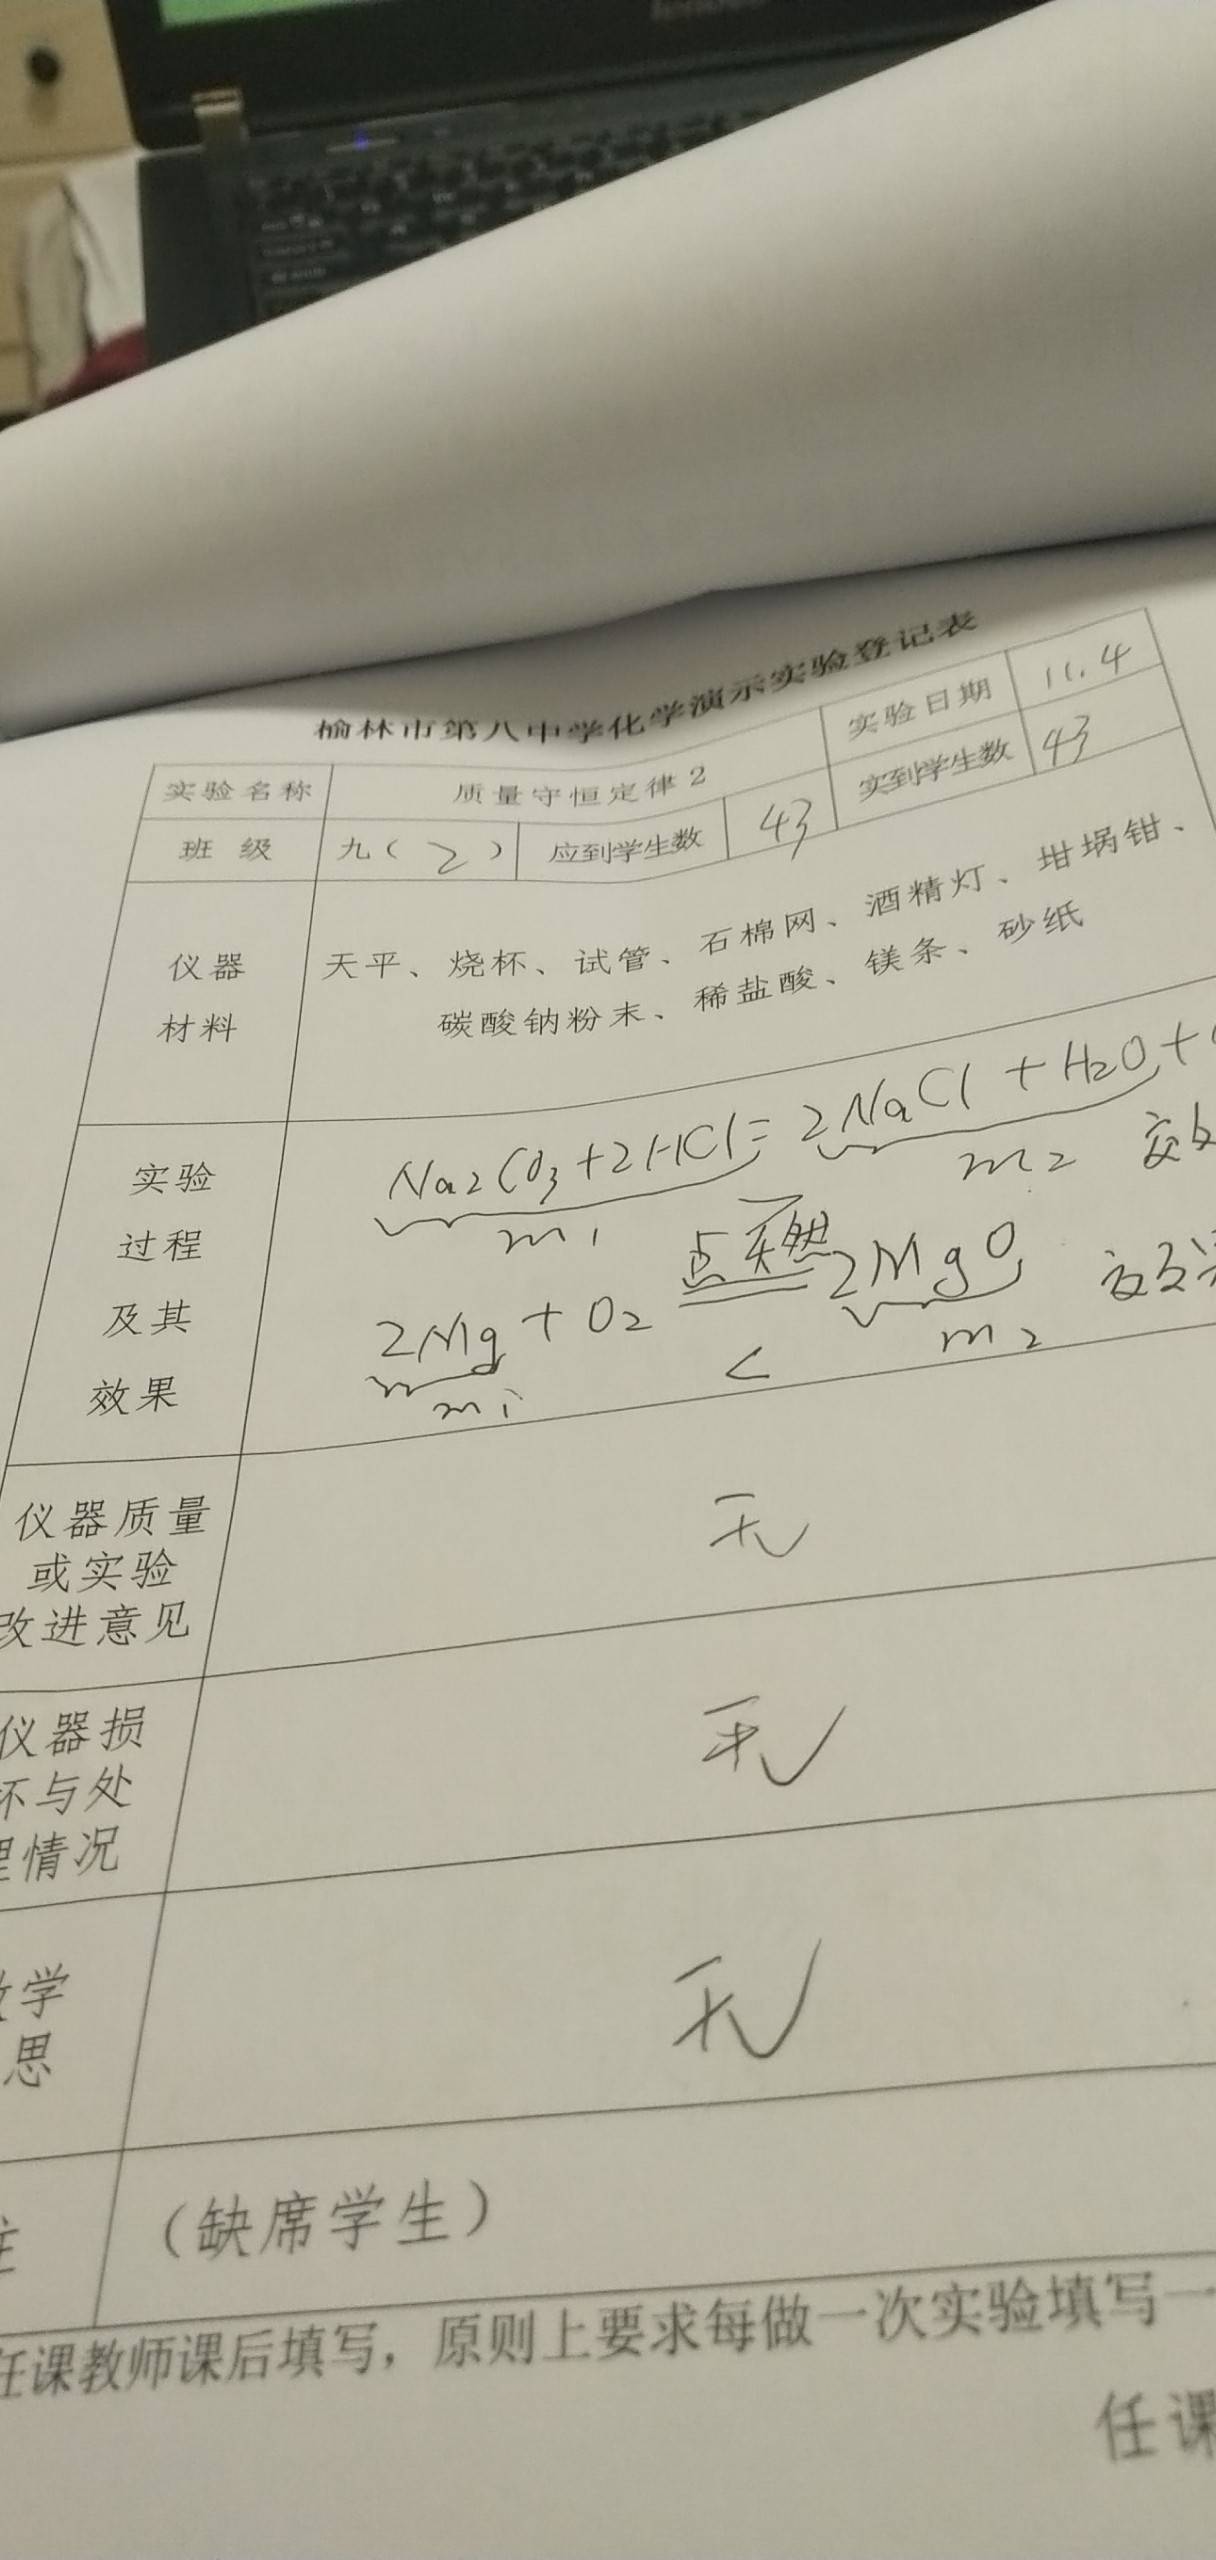 榆林市第八中学化学演示实验登记表
实验名称 质量守恒定律2 实验日期 11.4
班 级 九（2） 应到学生数 43 实到学生数 43
仪器 天平、烧杯、试管、石棉网、酒精灯、坩埚钳、
材料 碳酸钠粉末、稀盐酸、镁条、砂纸
实验
过程
及其
效果
Na2CO3+2HCl=2NaCl+H2O+
m1 m2 效
2Mg+O2 点燃 2MgO 效果
m1 < m2
仪器质量
或实验
改进意见
无
仪器损
坏与处
理情况
无
教学
思
无
注 （缺席学生）
任课教师课后填写，原则上要求每做一次实验填写一
任课